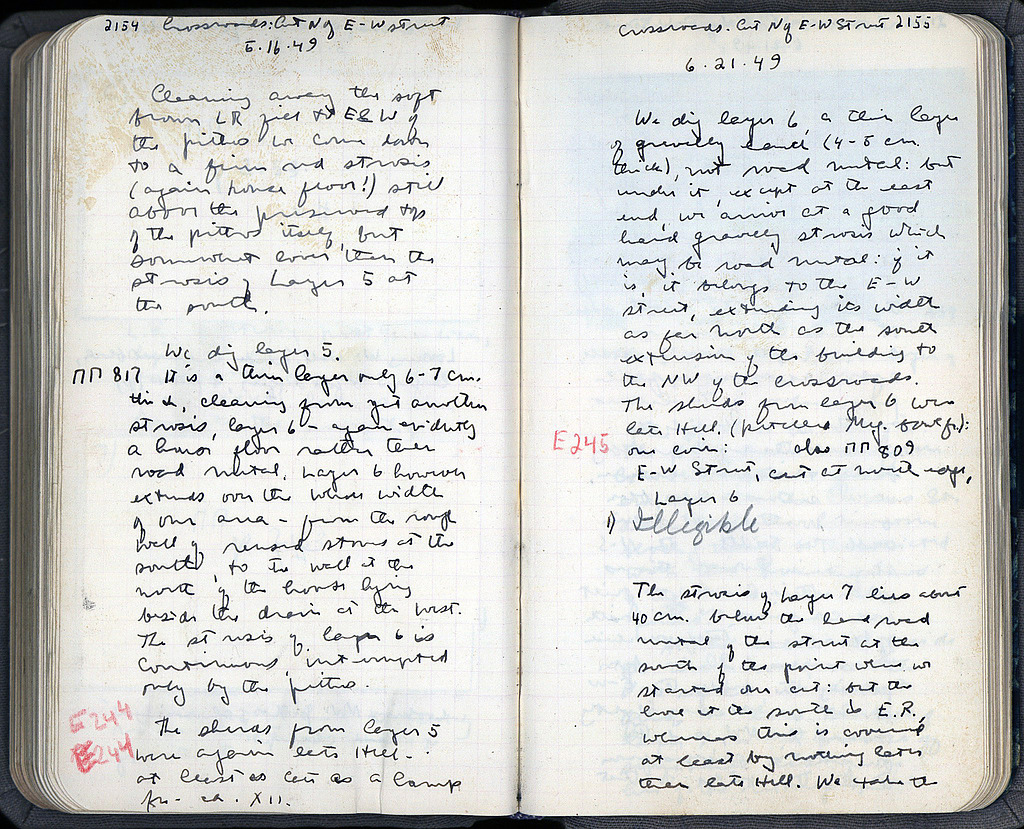 2154 Crossroads: Cut N of E-W Street
6.16.49
Cleaning away the soft
brown LR fill to E & W of
the pithos we come down
to a firm red strosis
(again house floor!) still
above the preserved top
of the pithos itself, but
somewhat lower than the
strosis of Layer 5 at
the south.
We dig layer 5.
ΠΠ 817 It is a thin layer only 6-7 cm.
thick, cleaning from yet another
strosis, layer 6 - again evidently
a house floor rather than
road metal. Layer 6 however
extends over the whole width
of our area - from the rough
wall of reused stones at the
south, to the wall at the
north of the house lying
beside the drain at the west.
The strosis of layer 6 is
continuous, interrupted
only by the pithos.
E 244
The sherds from layer 5
E 244
were again late Hell. -
at least as late as a lamp
fr. - ca. XII.
Crossroads. Cut N of E-W Street 2155
6.21.49
We dig layer 6, a thin layer
of gravelly sand (4-5 cm.
thick), not road metal: but
under it, except at the east
end, we arrive at a good
hard gravelly strosis which
may be road metal: if it
is, it belongs to the E-W
street, extending its width
as far north as the south
extension of the building to
the NW of the crossroads.
The sherds from layer 6 were
late Hell. (patterned Meg. bowl fr.):
E 245
one coin: also ΠΠ 809
E-W Street, cut at north edge,
Layer 6
1) Illegible
The strosis of Layer 7 lies about
40 cm. below the hard road
metal of the street at the
south of the point where we
started our cut: but the
level at the south is E.R.,
whereas this is covered
at least by nothing later
than late Hell. We take the